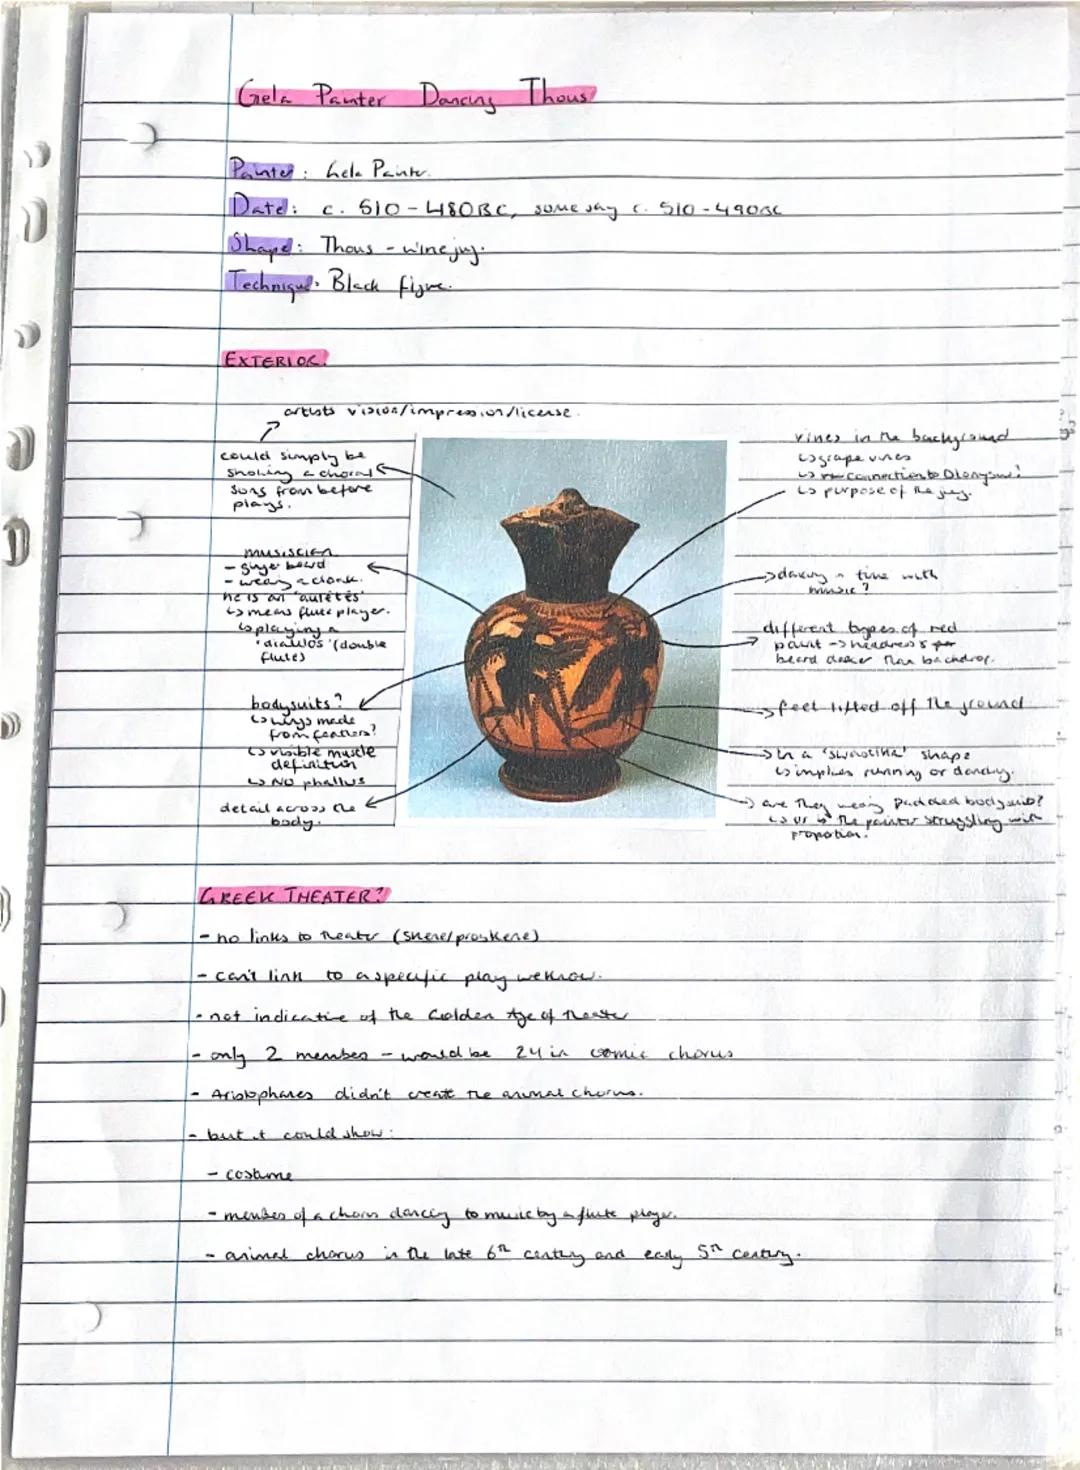 Gela Painter Dancing Thous
Painter: Gela Painter.
Date: c. 510-480BC, some say c. 510-490BC
Shape: Thous - wine jug.
Technique: Black figure.
EXTERIOR.
artists vision/impression/license.
could simply be
showing a choral
song from before
plays.
musiscian
- ginger beard
- wearing a cloak.
he is an 'auletes'
↳ means flute player.
↳ playing a
'diaulos' (double
flute)
bodysuits?
↳ wings made
from feathers?
↳ visible muscle
definition
↳ NO phallus
detail across the
body.
vines in the background
↳ grape vines
↳ connection to Dionysus?
↳ purpose of the jug.
→ dancing in time with
music?
different types of red
paint → headress
beard darker than backdrop.
→ feet lifted off the ground
→ In a 'swastika' shape
↳ implies running or dancing.
→ are they wearing padded bodysuits?
↳ or is the painter struggling with
propotion.
GREEK THEATER?
- no links to theater (skene/proskene)
- can't link to a specific play we know.
- not indicative of the Golden Age of theater
- only 2 members - would be 24 in comic chorus
- Aristophanes didn't create the animal chorus.
- but it could show:
- costume
- members of a chorus dancing to music by a flute player.
- animal chorus in the late 6th century and early 5th century.